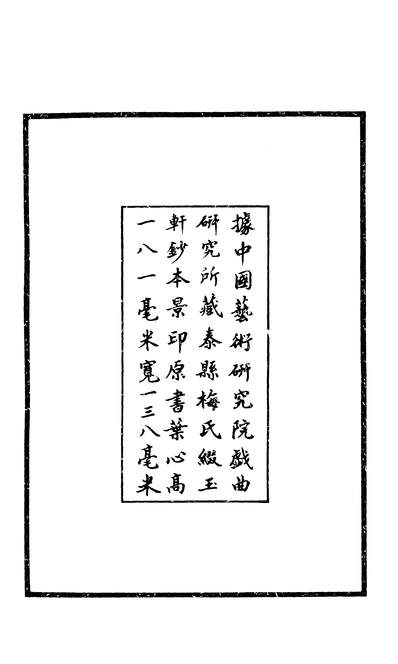 據中國藝術研究院戲曲
研究所藏泰縣梅氏綴玉
軒鈔本景印原書葉心高
一八一毫米寬一三八毫米